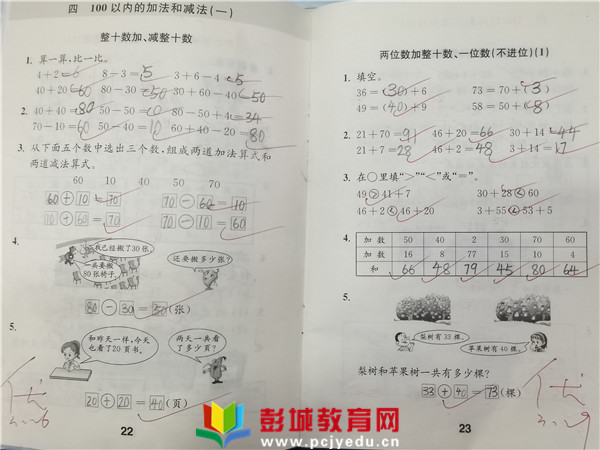 四 100以内的加法和减法(一)
整十数加、减整十数
1. 算一算,比一比。
4+2=6 8-3=5 3+6-4=5
40+20=60 80-30=50 30+60-40=50
2. 40+40=80 50-50=0 80-50+4=34
70-10=60 50-40=10 60+40-20=80
3. 从下面五个数中选出三个数,组成两道加法算式和
两道减法算式。
60 10 40 50 70
60+10=70 70-60=10
10+60=70 70-10=60
4.
我已经搬了30张。
一共要搬
80张椅子。
还要搬多少张?
80-30=50(张)
5.
和昨天一样,今天
也看了20页书。
两天一共看
了多少页?
20+20=40(页)
优
3.26
22
两位数加整十数、一位数(不进位)(1)
1. 填空。
36=(30)+6 73=70+(3)
49=(40)+9 58=50+(8)
2. 21+70=91 46+20=66 30+14=44
21+7=28 46+2=48 3+14=17
3. 在○里填“>”“<”或“=”。
49>41+7 30+28<60
46+2<46+20 3+55<53+5
4.
加数 50 40 2 30 70 60
加数 16 8 77 15 10 4
和 66 48 79 45 80 64
5.
梨树有33棵。
苹果树有40棵。
梨树和苹果树一共有多少棵?
33+40=73(棵)
优
23
彭城教育网
www.pcjyedu.cn